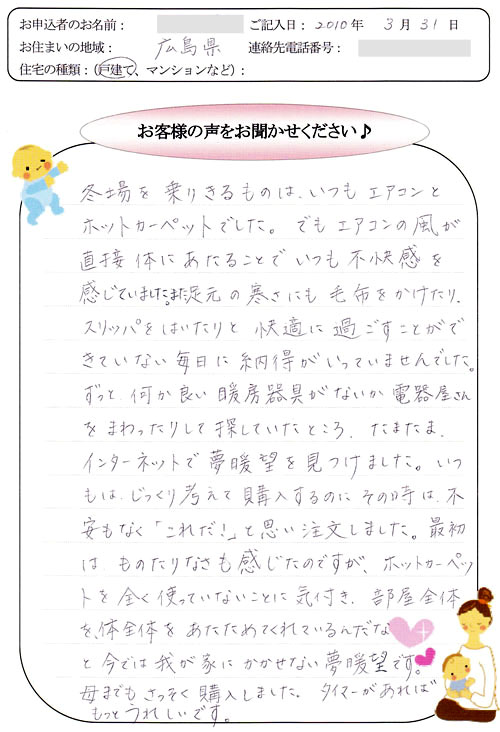 お申込者のお名前：　ご記入日：2010年 3月31日
お住まいの地域：広島県　連絡先電話番号：
住宅の種類：（戸建て、マンションなど）：
お客様の声をお聞かせください♪
冬場を乗りきるものは、いつもエアコンと
ホットカーペットでした。でもエアコンの風が
直接体にあたることでいつも不快感を
感じていました。また足元の寒さにも毛布をかけたり、
スリッパをはいたりと快適に過ごすことがで
きていない毎日に納得がいっていませんでした。
ずっと、何か良い暖房器具がないか電器屋さん
をまわったりして探していたところ、たまたま、
インターネットで夢暖望を見つけました。いつ
もは、じっくり考えて購入するのにその時は、不
安もなく「これだ！」と思い注文しました。最初
は、ものたりなさも感じたのですが、ホットカーペッ
トを全く使っていないことに気付き、部屋全体
を、体全体をあたためてくれているんだな
と今では我が家にかかせない夢暖望です。
母までもさっそく購入しました。タイマーがあれば
もっとうれしいです。